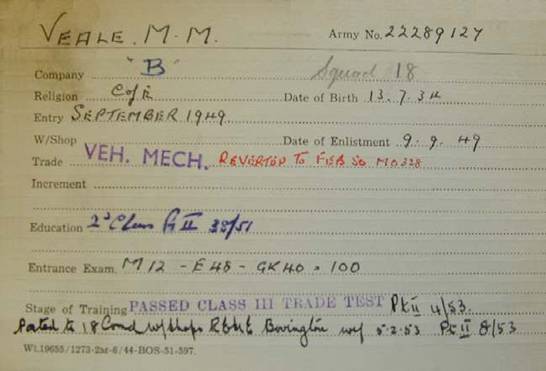 VEALE. M. M. Army No. 22289127
Company "B" Squad 18
Religion C of E Date of Birth 13. 7. 34
Entry SEPTEMBER 1949
W/Shop Date of Enlistment 9. 9. 49
Trade VEH. MECH. REVERTED TO
Increment
Education 2d Class Pt II 38/51
Entrance Exam. M12 - E48 - GK40 = 100
Stage of Training PASSED CLASS III TRADE TEST Pt II 4/53.
Posted to 18 Comd W/shops REME Bovington wef 5-2-53 Pt II 8/53
Wt.19655/1273-2mr-6/44-BOS-51-597.